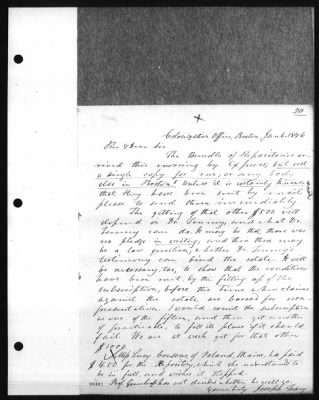 20
Colonization Office, Boston, Jan 6. 1846
Rev & Dear Sir
The Bundle of Repositories ar-
rived this morning by Express; but not
a single copy for me, or any body
else in Boston. Unless it is certainly known
that they have been sent by mail
please to send them immediately
The getting of that other $500 will
depend on Dr. Tenney, and what Dr.
Tenney can do. It may be that there was
no pledge in writing; and then there may
be a law question, whether Dr. Tenney's
testimony can bind the estate. It will
be necessary, too, to show that the conditions
have been met, by the filling up of the
subscription, before the time when claims
against the estate are barred for non-
presentation. I would count the subscription
as one of the fifteen, and then get another
if practicable, to fill its place if it should
fail. We are at work yet for that other
$1000.
Miss Lucy Cousens of Poland, Maine, has paid
$4.50 for the Repository, which she understands to
be in full, and wishes it stopped.
Prof. Greenleaf has not decided whether he will go.
Yours truly Joseph Tracy